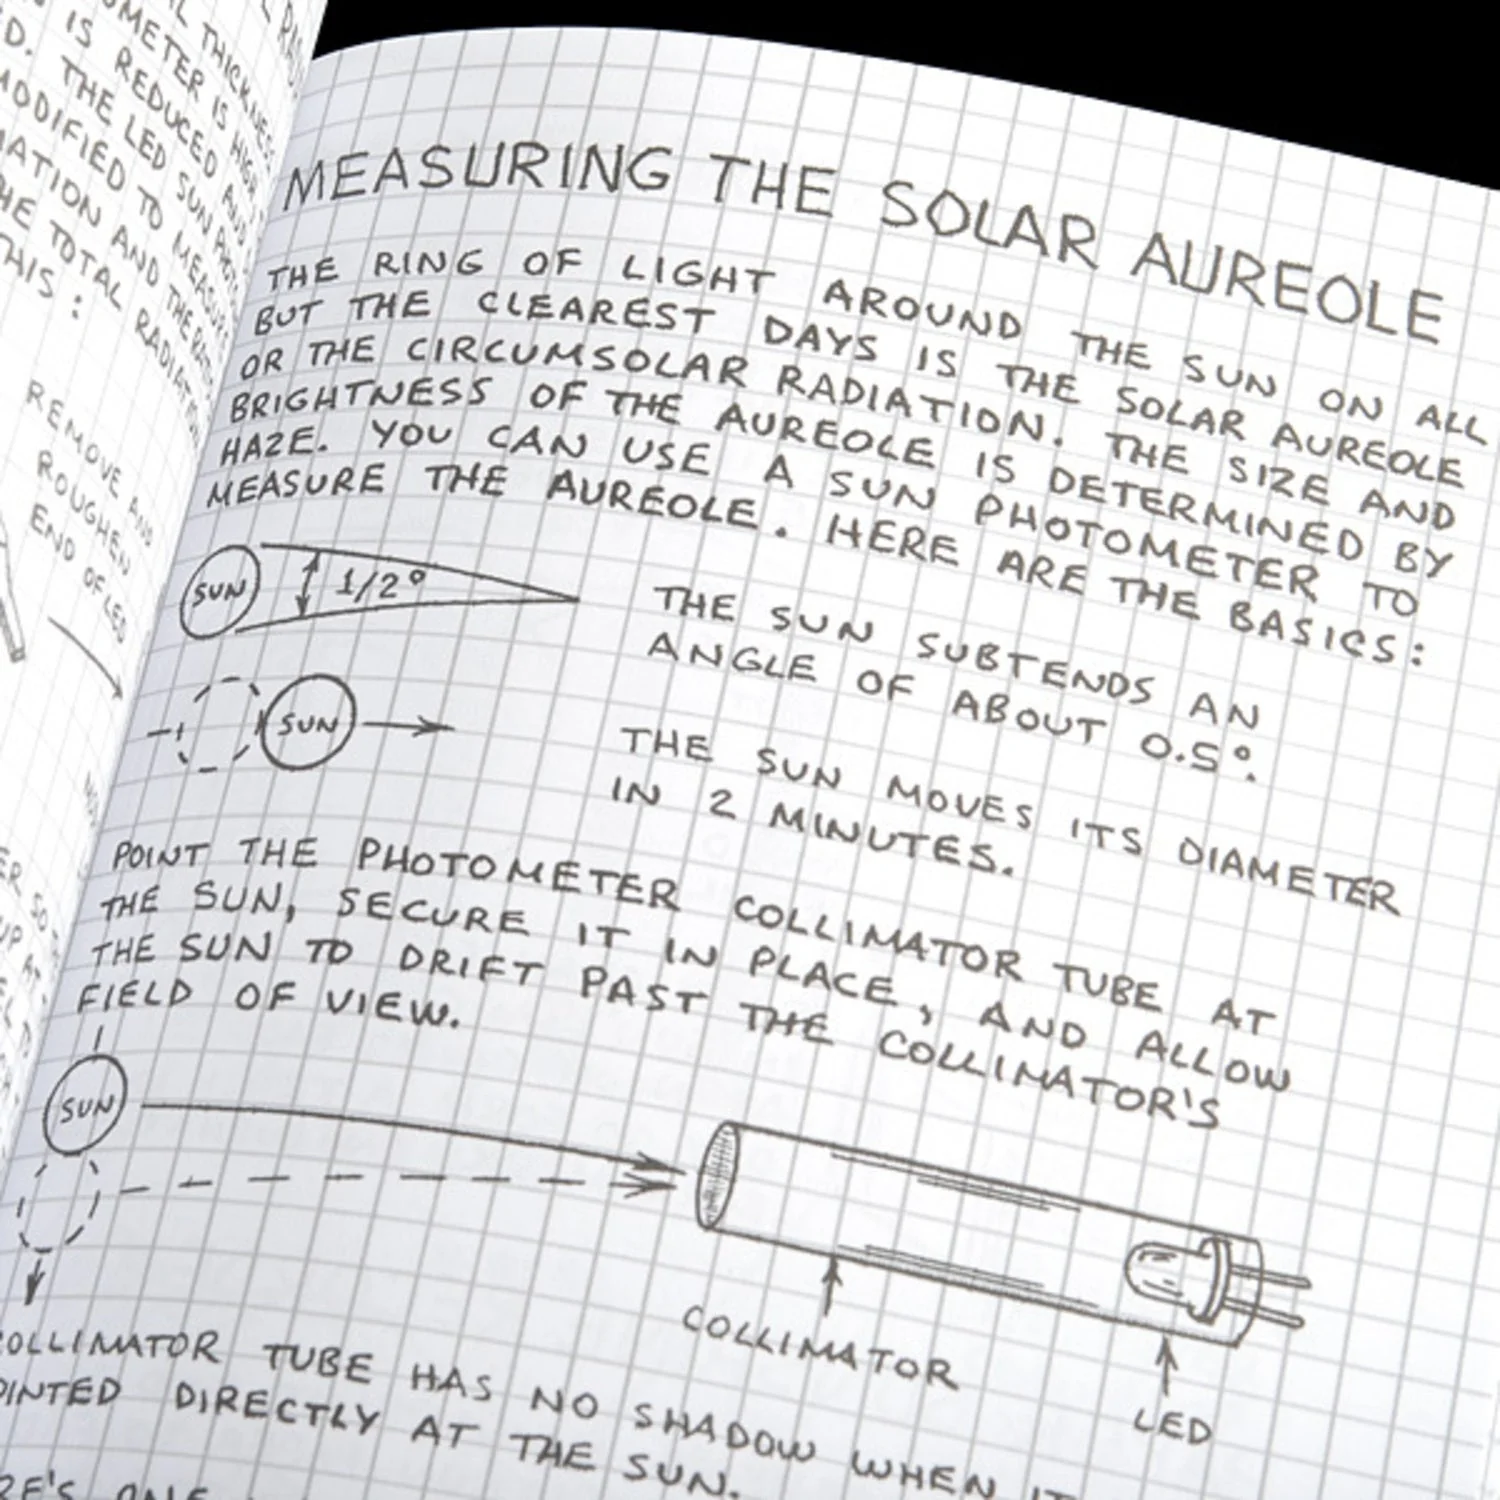 THICKNESS
OMETER IS HIGH
IS REDUCED AND
THE LED SUN
MODIFIED TO MEASURE
AND THE
THE TOTAL RADIATION
THIS:
REMOVE AND
ROUGHEN
END OF LED
MEASURING THE SOLAR AUREOLE
THE RING OF LIGHT AROUND THE SUN ON ALL
BUT THE CLEAREST DAYS IS THE SOLAR AUREOLE
OR THE CIRCUMSOLAR RADIATION. THE SIZE AND
BRIGHTNESS OF THE AUREOLE IS DETERMINED BY
HAZE. YOU CAN USE A SUN PHOTOMETER TO
MEASURE THE AUREOLE. HERE ARE THE BASICS:
SUN 1/2°
THE SUN SUBTENDS AN
ANGLE OF ABOUT 0.5°.
SUN
THE SUN MOVES ITS DIAMETER
IN 2 MINUTES.
POINT THE PHOTOMETER COLLIMATOR TUBE AT
THE SUN, SECURE IT IN PLACE, AND ALLOW
THE SUN TO DRIFT PAST THE COLLIMATOR'S
FIELD OF VIEW.
SUN
COLLIMATOR
LED
COLLIMATOR TUBE HAS NO SHADOW WHEN IT
OINTED DIRECTLY AT THE SUN.
RE'S ONE